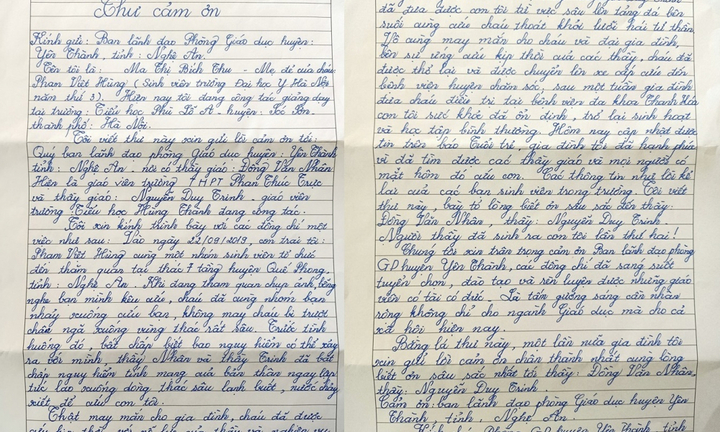 Thư cảm ơn
Kính gửi: Ban lãnh đạo Phòng Giáo dục huyện:
Yên Thành, tỉnh: Nghệ An.
Tên tôi là: Ma Thị Bích Thu - Mẹ đẻ của cháu
Phan Việt Hùng (Sinh viên trường Đại học Y Hà Nội
năm thứ 3). Hiện nay tôi đang công tác giảng dạy
tại trường: Tiểu học Phù Lỗ A huyện: Sóc Sơn.
thành phố: Hà Nội.
Tôi viết thư này xin gửi lời cảm ơn tới:
Quý ban lãnh đạo phòng Giáo dục huyện: Yên Thành
tỉnh: Nghệ An. nơi có thầy giáo: Đồng Văn Nhân
Hiện là giáo viên trường THPT Phan Thúc Trực
và thầy giáo: Nguyễn Duy Trinh. giáo viên
trường Tiểu học Hùng Thành đang công tác.
Tôi xin kính trình bày với các đồng chí một
việc như sau: Vào ngày 22/09/2019, con trai tôi:
Phan Việt Hùng cùng một nhóm sinh viên tổ chức
đến thăm quan tại thác 7 tầng huyện Quế Phong,
tỉnh: Nghệ An. Khi đang tham quan chụp ảnh, bỗng
nghe bạn mình kêu cứu, cháu đã cùng nhóm bạn
nhảy xuống cứu bạn, không may cháu bị trượt
chân ngã xuống vùng thác rất sâu. Trước tình
huống đó, bất chấp biết bao nguy hiểm có thể xảy
ra với mình, thầy Nhân và thầy Trinh đã bất
chấp nguy hiểm tính mạng của bản thân ngay lập
tức lao xuống dòng thác sâu lạnh buốt, nước chảy
xiết để cứu con tôi.
Thật may mắn cho gia đình, cháu đã được
đã đưa được con tôi từ vực sâu lên tảng đá bên
suối cùng của cháu thoát khỏi lưỡi hái tử thần.
Vô cùng may mắn cho cháu và đại gia đình,
bên sự ứng cứu kịp thời của các thầy, cháu đã
được thở lại và được chuyển lên xe cấp cứu đến
bệnh viện huyện chăm sóc, sau một tuần gia đình
đưa cháu điều trị tại bệnh viện đa khoa Thanh Hóa
con tôi sức khoẻ đã ổn định, trở lại sinh hoạt
và học tập bình thường. Hôm nay cập nhật được
tin trên báo Tuổi trẻ, gia đình tôi đã hạnh phúc
vì đã tìm được các thầy giáo và mọi người có
mặt hôm đó cứu con. Các thông tin như lời kể
lại của các bạn sinh viên trong trường. Tôi viết
thư này, bày tỏ lòng biết ơn sâu sắc đến thầy:
Đồng Văn Nhân, thầy: Nguyễn Duy Trinh
Người thầy đã sinh ra con tôi lần thứ hai!
Chúng tôi xin trân trọng cảm ơn Ban lãnh đạo phòng
GD huyện Yên Thành, các đồng chí đã sáng suốt
tuyển chọn, đào tạo và rèn luyện được những giáo
viên có tài có đức. Là tấm gương sáng cần nhân
rộng không chỉ cho ngành Giáo dục mà cho cả
xã hội hiện nay.
Bằng lá thư này, một lần nữa gia đình tôi
xin gửi lời cảm ơn chân thành nhất cùng lòng
biết ơn sâu sắc nhất tới thầy: Đồng Văn Nhân,
thầy: Nguyễn Duy Trinh.
Cảm ơn: ban lãnh đạo phòng Giáo dục huyện Yên
Thành, tỉnh, Nghệ An.